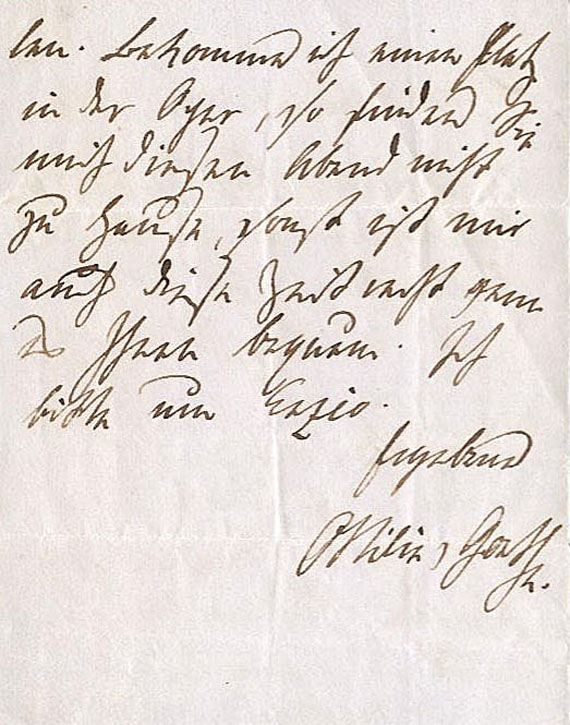 len. Bekomme ich einen Platz
in der Oper, so finden Sie
mich diesen Abend nicht
zu Hause, sonst ist mir
auch diese Zeit recht wenn
es Ihnen bequem. Ich
bitte um
Ergebenst
Ottilie v Goethe